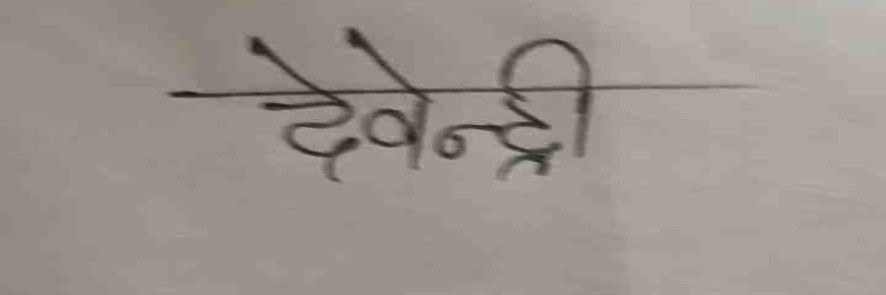 देवेन्द्री